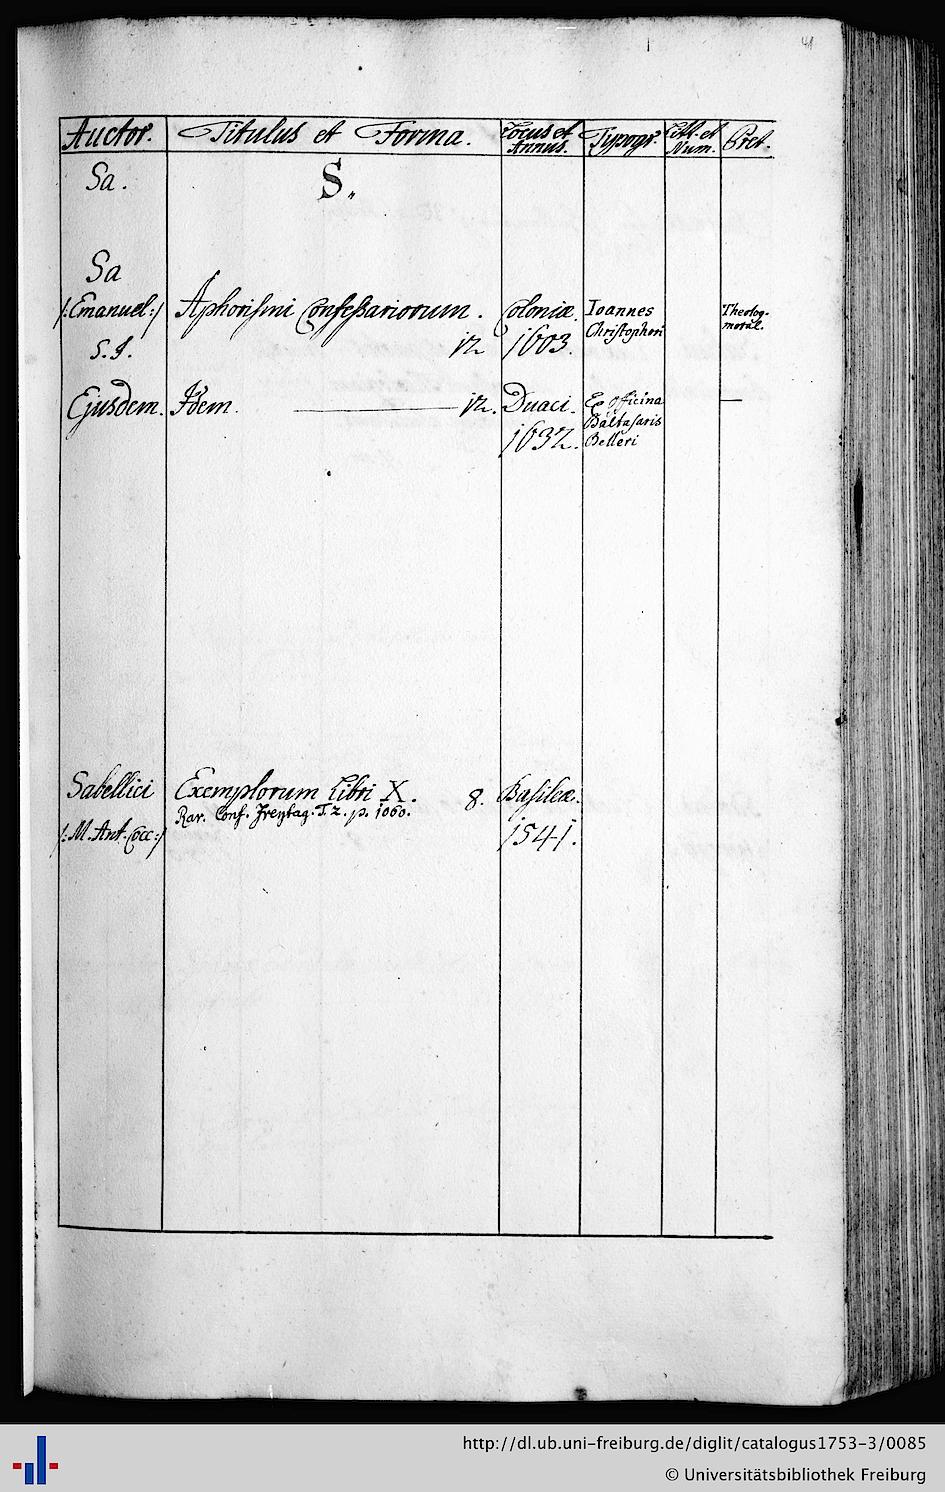 41
Auctor. Titulus et Forma. Locus et Annus. Typogr. Litt. et Num. Pret.
Sa. S.
Sa
/:Emanuel:/ Aphorismi Confessariorum. Coloniæ. Ioannes Theolog.
Christophori moral.
S.J. 12 1603.
Ejusdem. Idem. 12. Duaci. Ex officina —
Baltasaris
1632. Belleri
Sabellici Exemplorum Libri X. 8. Basileæ.
Rar. Conf. Freytag. T. 2. p. 1060.
/:M. Ant. Cocc:/ 1541.
http://dl.ub.uni-freiburg.de/diglit/catalogus1753-3/0085
© Universitätsbibliothek Freiburg